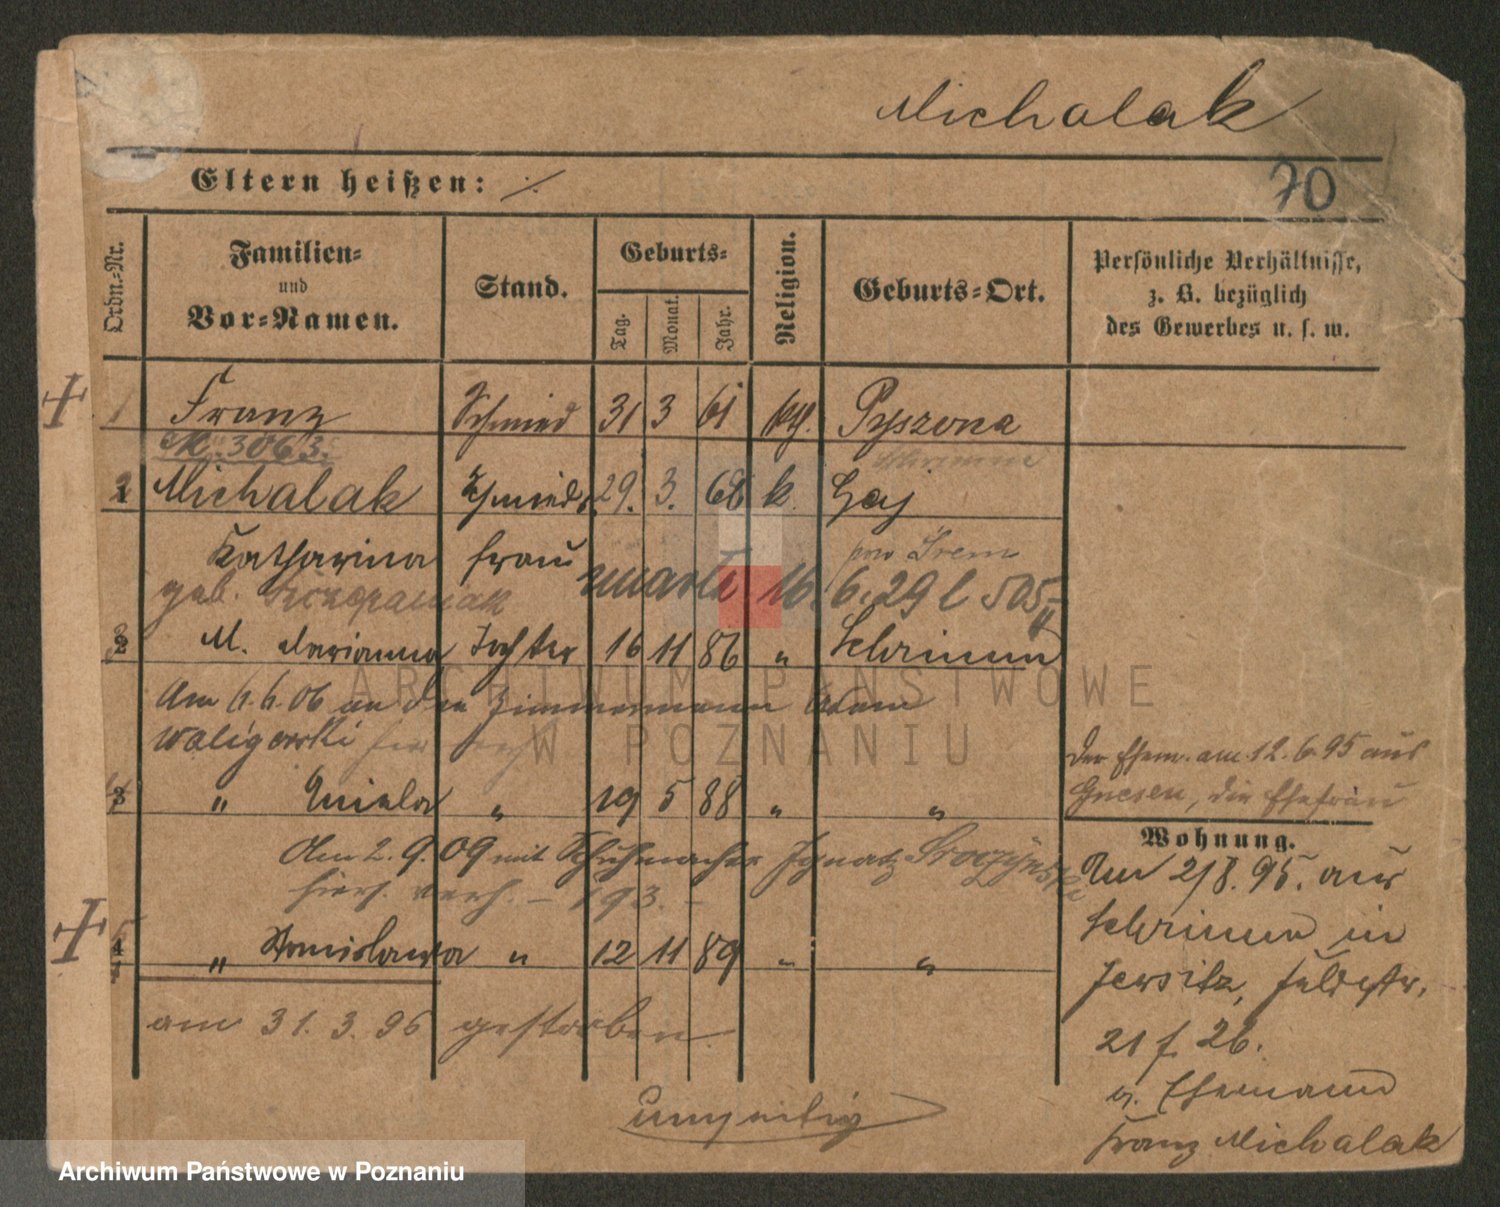 Michalak
70
Eltern heißen: ·/·
Ordn.=Nr.
Familien=
und
Vor=Namen.
Stand.
Geburts=
Tag.
Monat.
Jahr.
Religion.
Geburts=Ort.
Persönliche Verhältnisse,
z. B. bezüglich
des Gewerbes u. s. w.
1 Franz Schmied 31 3 61 kth. Pyszona
№ 3063.
2 Michalak Schmieds 29. 3. 68 k. Gaj
Katharina frau pow Srem
geb. Szczepaniak 16. 6. 29 l 505
3 M. Marianna Tochter 16 11 86 " Schrimm
Am 6.6.06 an den Zimmermann Adam
Waligorski hier verh
" Aniela " 19 5 88 " "
Am 2.9.09 mit Schuhmacher Ignatz
hiers. verh. – 193. –
" Stanislawa " 12 11 89 " "
am 31. 3. 96 gestorben.
Der Ehem. am 12.6.95 aus
Gnesen, die Ehefrau
Wohnung.
Am 2/8. 95. aus
Schrimm in
Jersitz, Feldstr.
21 f. 26.
z. Ehemann
Franz Michalak
umseitig
ARCHIWUM PAŃSTWOWE
W POZNANIU
Archiwum Państwowe w Poznaniu